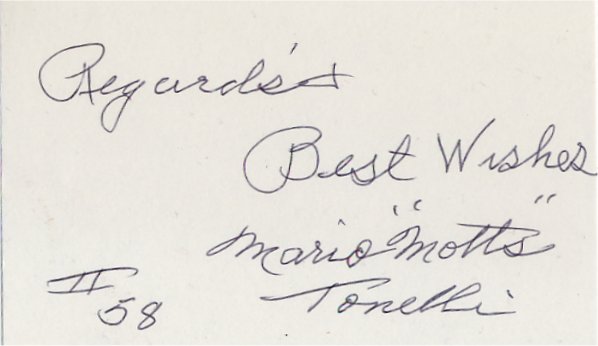 Regard's &
Best Wishes
Mario "Motts"
Tonelli
II
58